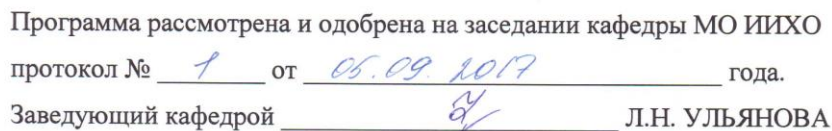 Программа рассмотрена и одобрена на заседании кафедры МО ИИХО
протокол № 1 от 05.09. 2017 года.
Заведующий кафедрой Л.Н. УЛЬЯНОВА